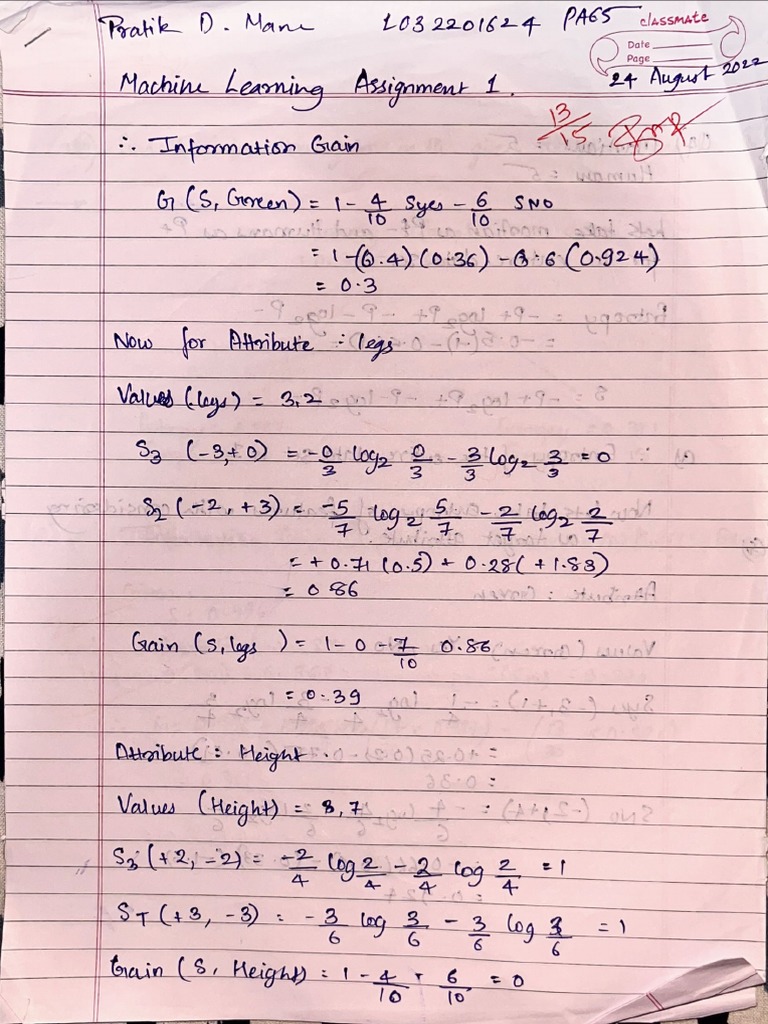 Pratik D. Mane 1032201624 PA65 classmate
Date
Page
24 August 2022
Machine Learning Assignment 1.
13/15
∴ Information Gain
G (S, Green) = 1 - 4/10 Syes - 6/10 SNO
= 1 - (0.4) (0.36) - 0.6 (0.924)
= 0.3
Now for Attribute : legs
Values (legs) = 3,2
S3 (-3,+0) = -0/3 log2 0/3 - 3/3 log2 3/3 = 0
S2 (-2, +3) = -5/7 log2 5/7 - 2/7 log2 2/7
= +0.71 (0.5) + 0.28 (+1.83)
= 0.86
Gain (S, legs ) = 1 - 0 - 7/10 0.86
= 0.39
Attribute : Height .
Values (Height) = S,T
S3 (+2, -2) = -2/4 log 2/4 - 2/4 log 2/4 = 1
ST (+3, -3) = -3/6 log 3/6 - 3/6 log 3/6 = 1
Gain (S, Height) = 1 - 4/10 - 6/10 = 0